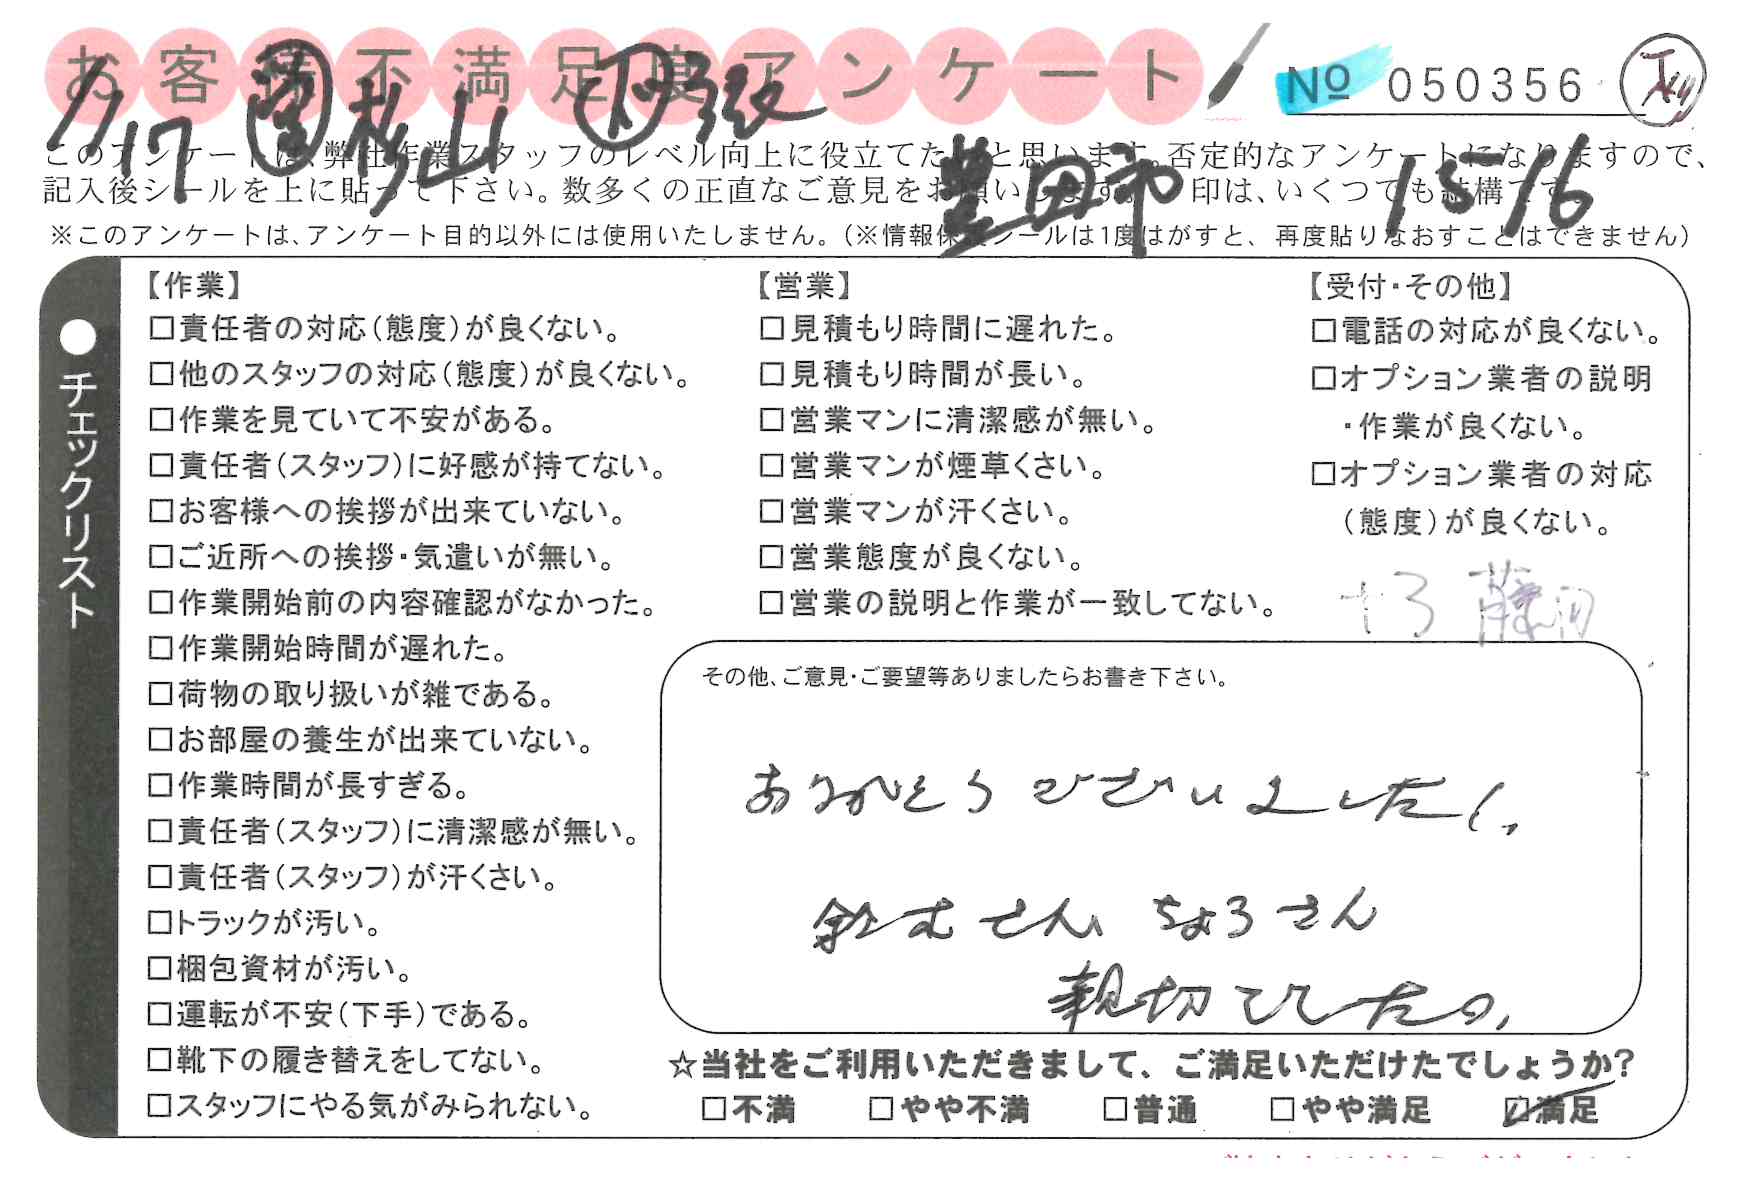 お客様不満足度アンケート
№ 050356
7/17 杉山 下 引越
豊田市 1516
このアンケートは、弊社作業スタッフのレベル向上に役立てたいと思います。否定的なアンケートになりますので、
記入後シールを上に貼って下さい。数多くの正直なご意見をお願いします。 印は、いくつでも結構です
※このアンケートは、アンケート目的以外には使用いたしません。(※情報保護シールは1度はがすと、再度貼りなおすことはできません)
●チェックリスト
【作業】
□責任者の対応(態度)が良くない。
□他のスタッフの対応(態度)が良くない。
□作業を見ていて不安がある。
□責任者(スタッフ)に好感が持てない。
□お客様への挨拶が出来ていない。
□ご近所への挨拶・気遣いが無い。
□作業開始前の内容確認がなかった。
□作業開始時間が遅れた。
□荷物の取り扱いが雑である。
□お部屋の養生が出来ていない。
□作業時間が長すぎる。
□責任者(スタッフ)に清潔感が無い。
□責任者(スタッフ)が汗くさい。
□トラックが汚い。
□梱包資材が汚い。
□運転が不安(下手)である。
□靴下の履き替えをしてない。
□スタッフにやる気がみられない。
【営業】
□見積もり時間に遅れた。
□見積もり時間が長い。
□営業マンに清潔感が無い。
□営業マンが煙草くさい。
□営業マンが汗くさい。
□営業態度が良くない。
□営業の説明と作業が一致してない。
【受付・その他】
□電話の対応が良くない。
□オプション業者の説明
・作業が良くない。
□オプション業者の対応
(態度)が良くない。
+3
その他、ご意見・ご要望等ありましたらお書き下さい。
ありがとうございました
さん ちょろさん
親切でした
☆当社をご利用いただきまして、ご満足いただけたでしょうか?
□不満 □やや不満 □普通 □やや満足 ☑満足